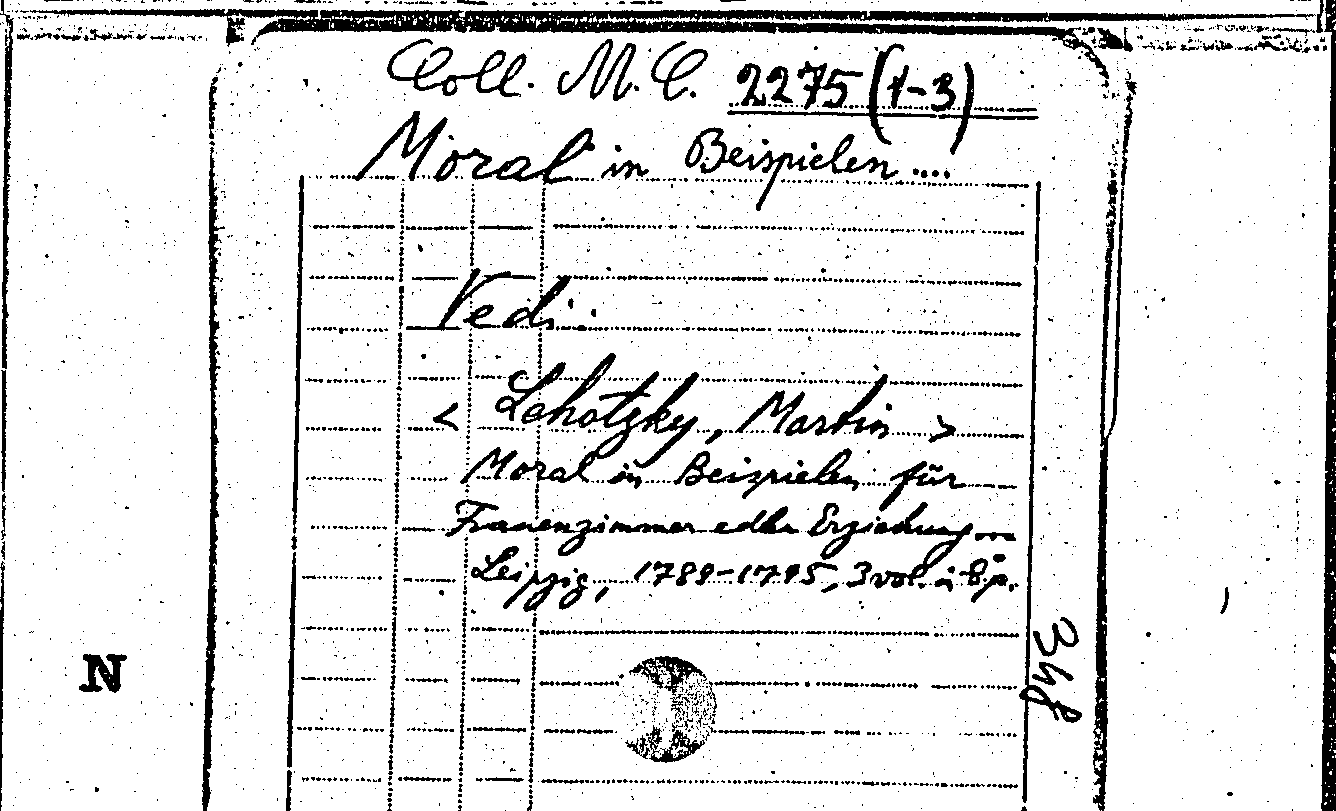 Coll. M. C. 2275 (1-3)
Moral in Beispielen ....
Vedi:
< Lehotzky, Martin >
Moral in Beispielen für
Frauenzimmer edlen Erziehung...
Leipzig, 1789-1795, 3 vol. in 8p.
N